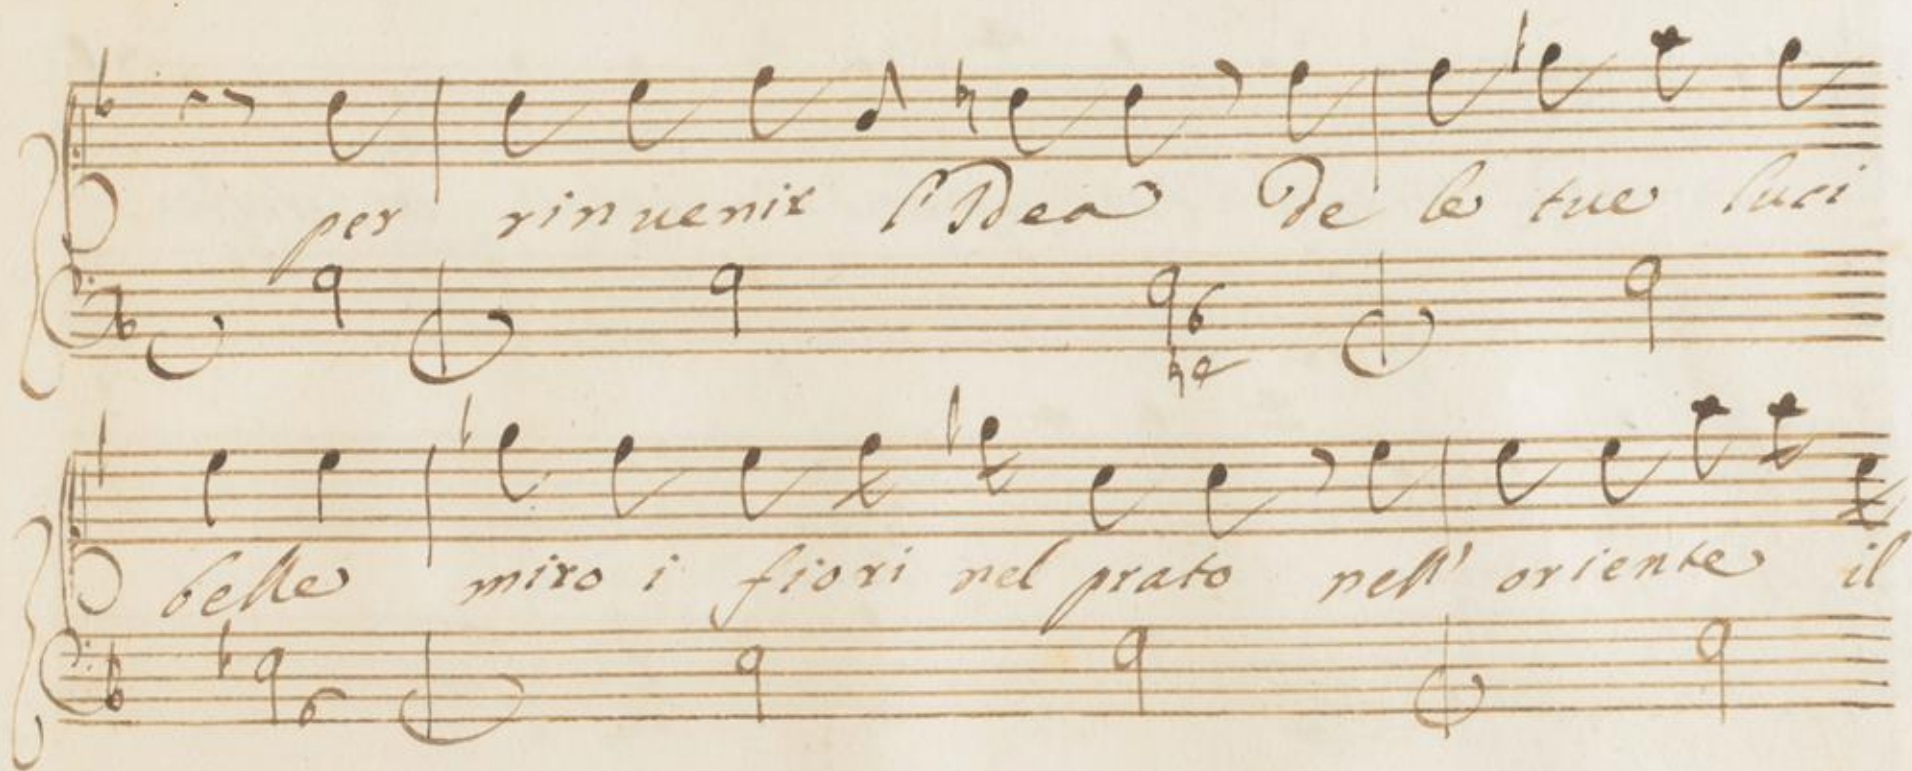 per rinuenir l'Idea de le tue luci
belle miro i fiori nel prato nell' oriente il